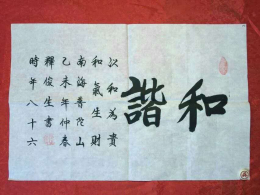 和諧
以和為貴
和氣生財
南海普陀山
乙未年仲春
釋俊生書
時年八十六